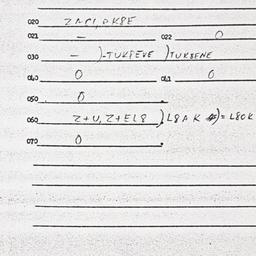 020 ZACI,DK8E
021 — 022 0
030 — )-TUK8EVE )TUK8ENE
040 0 041 0
050 0
060 Z+U,Z+EL8 )L8A K )=L80K
070 0